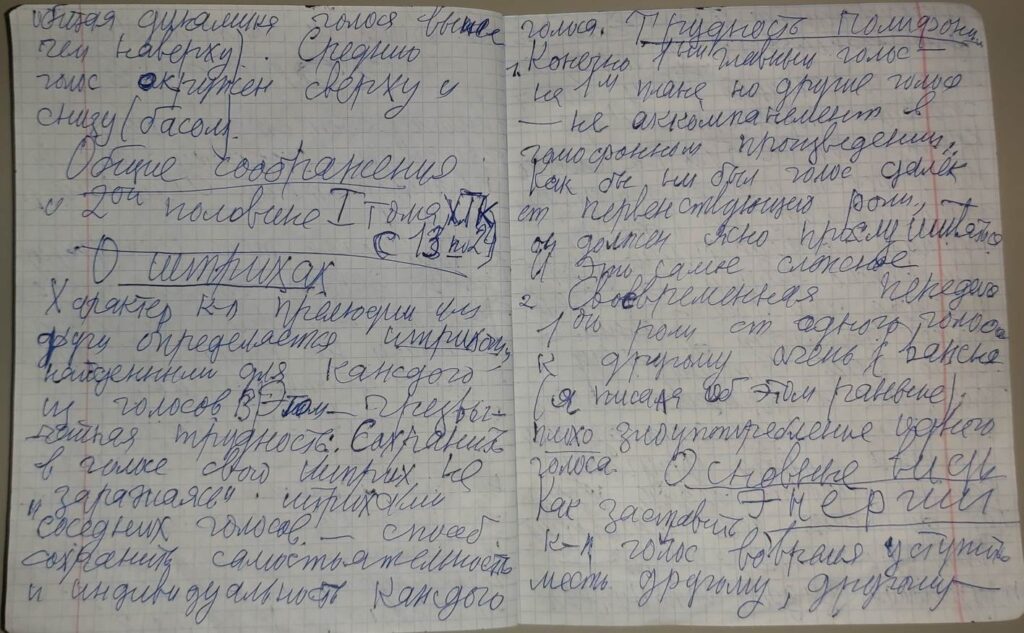 общая динамика голоса выше
чем наверху). Средний
голос окружен сверху и
снизу (басом).
Общие соображения
о 2ой половине I тома ХТК
с 13 по 24
О штрихах
Характер к-л прелюдии или
фуги определяется штрихами,
найденными для каждого
из голосов. В этом – чрезвы-
чайная трудность: Сохранить
в голосе свой штрих не
"заражаясь" штрихами
соседних голосов. – способ
сохранить самостоятельность
и индивидуальность каждого
голоса. Трудность полифонии
1. Конечно 1ый главный голос –
на 1м плане но другие голоса
– не аккомпанемент в
гомофонном произведении.
Как бы ни был голос далёк
от первенствующей роли,
он должен ясно прослушиваться
Это самое сложное
2 Своевременная передача
1ой роли от одного голоса
к другому очень важна
(я писала об этом раньше)
плохо злоупотребление одного
голоса. Основные виды
Энергии
Как заставить
к-л голос вовремя уступить
место другому, другому –